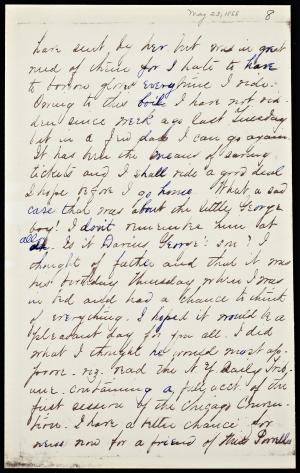 May 23, 1868
8
have sent, by her but was in great
need of them for I hate to have
to borrow gloves every time I ride.
Owing to this boil I have not rid-
den since week ago last Tuesday
but in a few days I can go again.
It has been the means of saving
tickets and I shall ride a good deal
I hope before I go home. What a sad
case that was about the little George
boy! I don't remember him at
all. Is it Darius George's son? I
thought of father and that it was
his birthday Thursday when I was
in bed and had a chance to think
of everything. I hoped it would be a
pleasant day for you all. I did
what I thought he would most ap-
prove. viz. read the N.Y. Daily Trib-
une. containing a full acct of the
first session of the Chicago Conven-
tion. I have a better chance for
news now for a friend of Miss